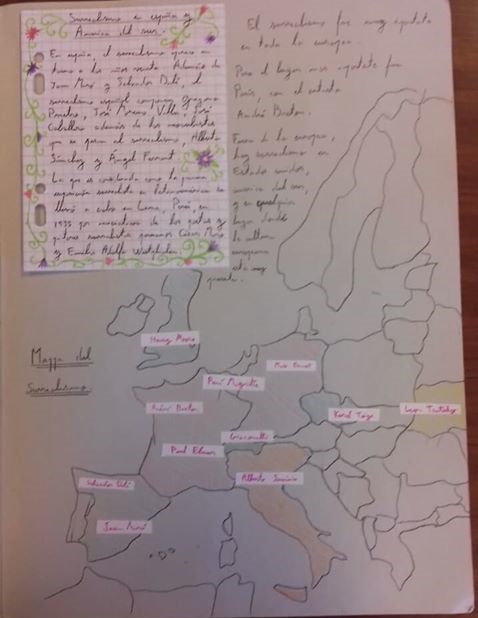 Surrealismo en españa y
America del sur.
En españa, el surrealismo aparece en
torno a los años veinte. Además de
Joan Miró y Salvador Dalí, el
surrealismo español
José Moreno Villa, José
Caballero además de los
que se suman al surrealismo, Alberto
Sánchez y Angel Ferrant.
La que es considerada como la primera
exposición surrealista en Latinoamérica se
llevó a cabo en Lima, Perú, en
1935 por de los poetas y
pintores surrealistas peruanos César Moro
y Emilio Adolfo Westphalen.
El surrealismo fue muy
en toda la europa.
Pero el lugar mas fue
París, con el artista
André Breton.
Fuera de la europa,
hay surrealismo en
Estados unidos,
america del sur,
y en cualquier
lugar donde
la cultura
europea
está muy
Mappa del
Surrealismo
Henry Moore
Max Ernst
René Magritte
André Breton
Karel Teige
Paul Eluard
Giacometti
Alberto Savinio
Salvador Dalí
Joan Miró